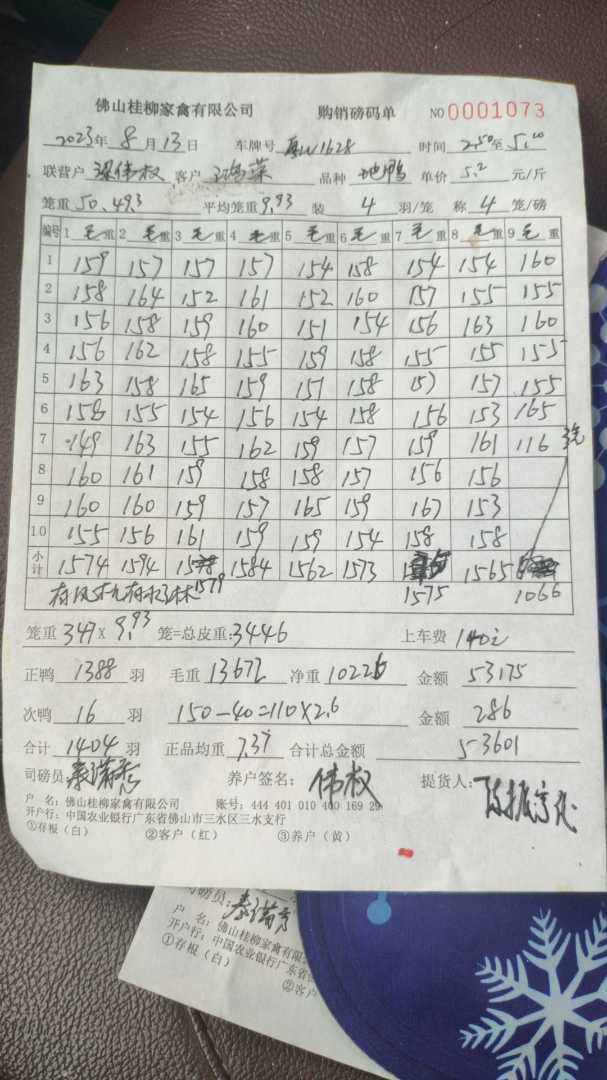 佛山桂柳家禽有限公司 购销磅码单 NO 0001073
2023年 8月 13日 车牌号 W1628 时间 2.50至 5.00
联营户 梁伟权 客户 鸿荣 品种 地鸭 单价 5.2 元/斤
笼重 50.49.3 平均笼重 9.93 装 4 羽/笼 称 4 笼/磅
编号 1 毛重 2 毛重 3 毛重 4 毛重 5 毛重 6 毛重 7 毛重 8 毛重 9 毛重
1 159 157 157 157 154 158 154 154 160
2 158 164 152 161 152 160 157 155 155
3 156 158 159 160 151 154 156 163 160
4 156 162 158 155 159 158 155 155 155
5 163 158 165 159 151 158 157 157 155
6 158 155 154 156 154 158 156 153 165
7 149 163 155 162 159 157 159 161 116 3笼
8 160 161 159 158 158 157 156 156
9 160 160 159 157 165 159 167 153
10 155 156 161 159 159 154 158 158
小计 1574 1594 1579 1584 1562 1573 1575 1565 1066
笼重 347 × 9.93 笼=总皮重: 3446 上车费 140元
正鸭 1388 羽 毛重 13672 净重 10226 金额 53175
次鸭 16 羽 150-40=110×2.6 金额 286
合计 1404 羽 正品均重 7.37 合计总金额 53601
司磅员: 秦满秀 养户签名: 伟权 提货人:
户 名: 佛山桂柳家禽有限公司 账号: 444 401 010 400 169 29
开户行: 中国农业银行广东省佛山市三水区三水支行
①存根(白) ②客户(红) ③养户(黄)
司磅员: 秦满秀
户 名: 佛山桂柳家禽有限
开户行: 中国农业银行广东省佛
①存根(白) ②客户